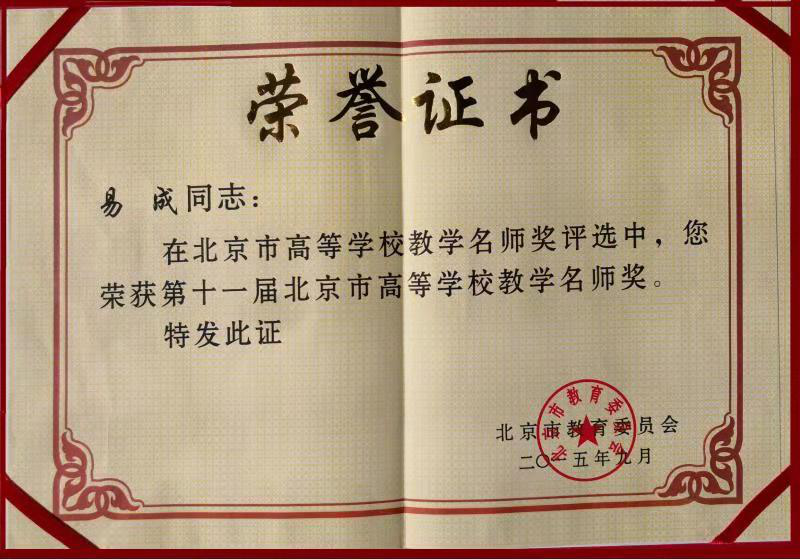 荣誉证书
易成同志：
在北京市高等学校教学名师奖评选中，您
荣获第十一届北京市高等学校教学名师奖。
特发此证
北京市教育委员会
二〇一五年九月
北京市教育委员会